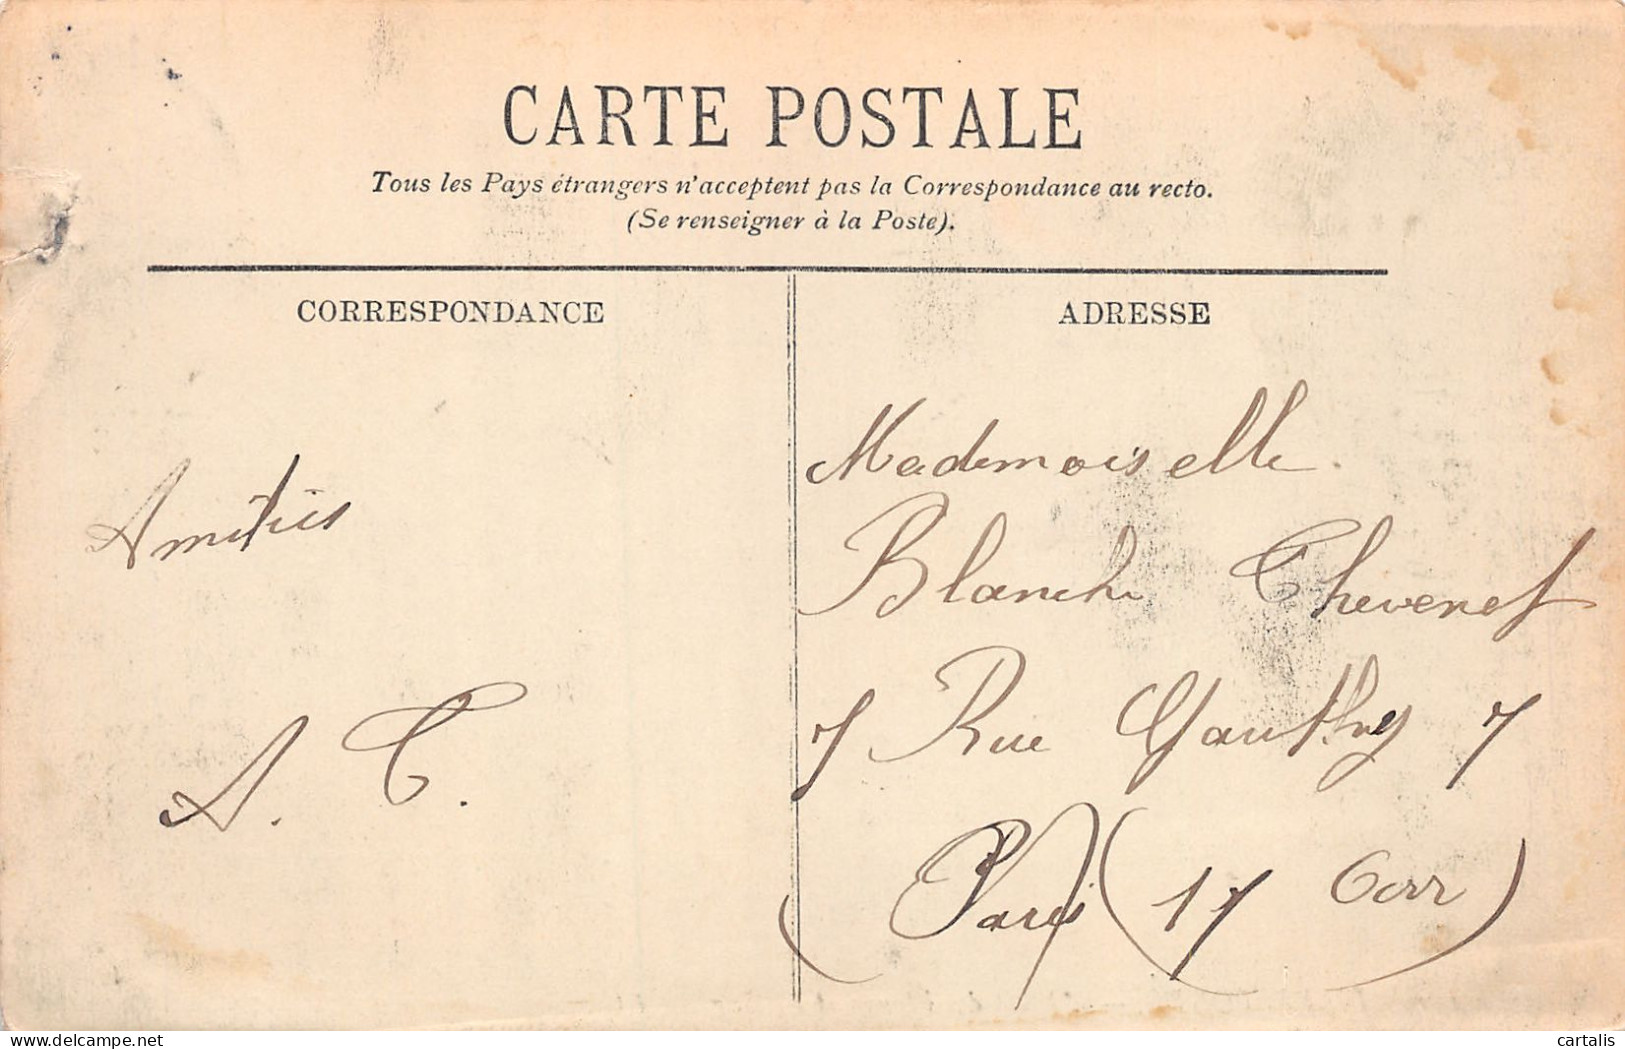 CARTE POSTALE
Tous les Pays étrangers n'acceptent pas la Correspondance au recto.
(Se renseigner à la Poste).
CORRESPONDANCE
Amitiés
A. C.
ADRESSE
Mademoiselle
Blanche Chevenet
7 Rue Gauthey 7
Paris (17
delcampe.net
cartalis